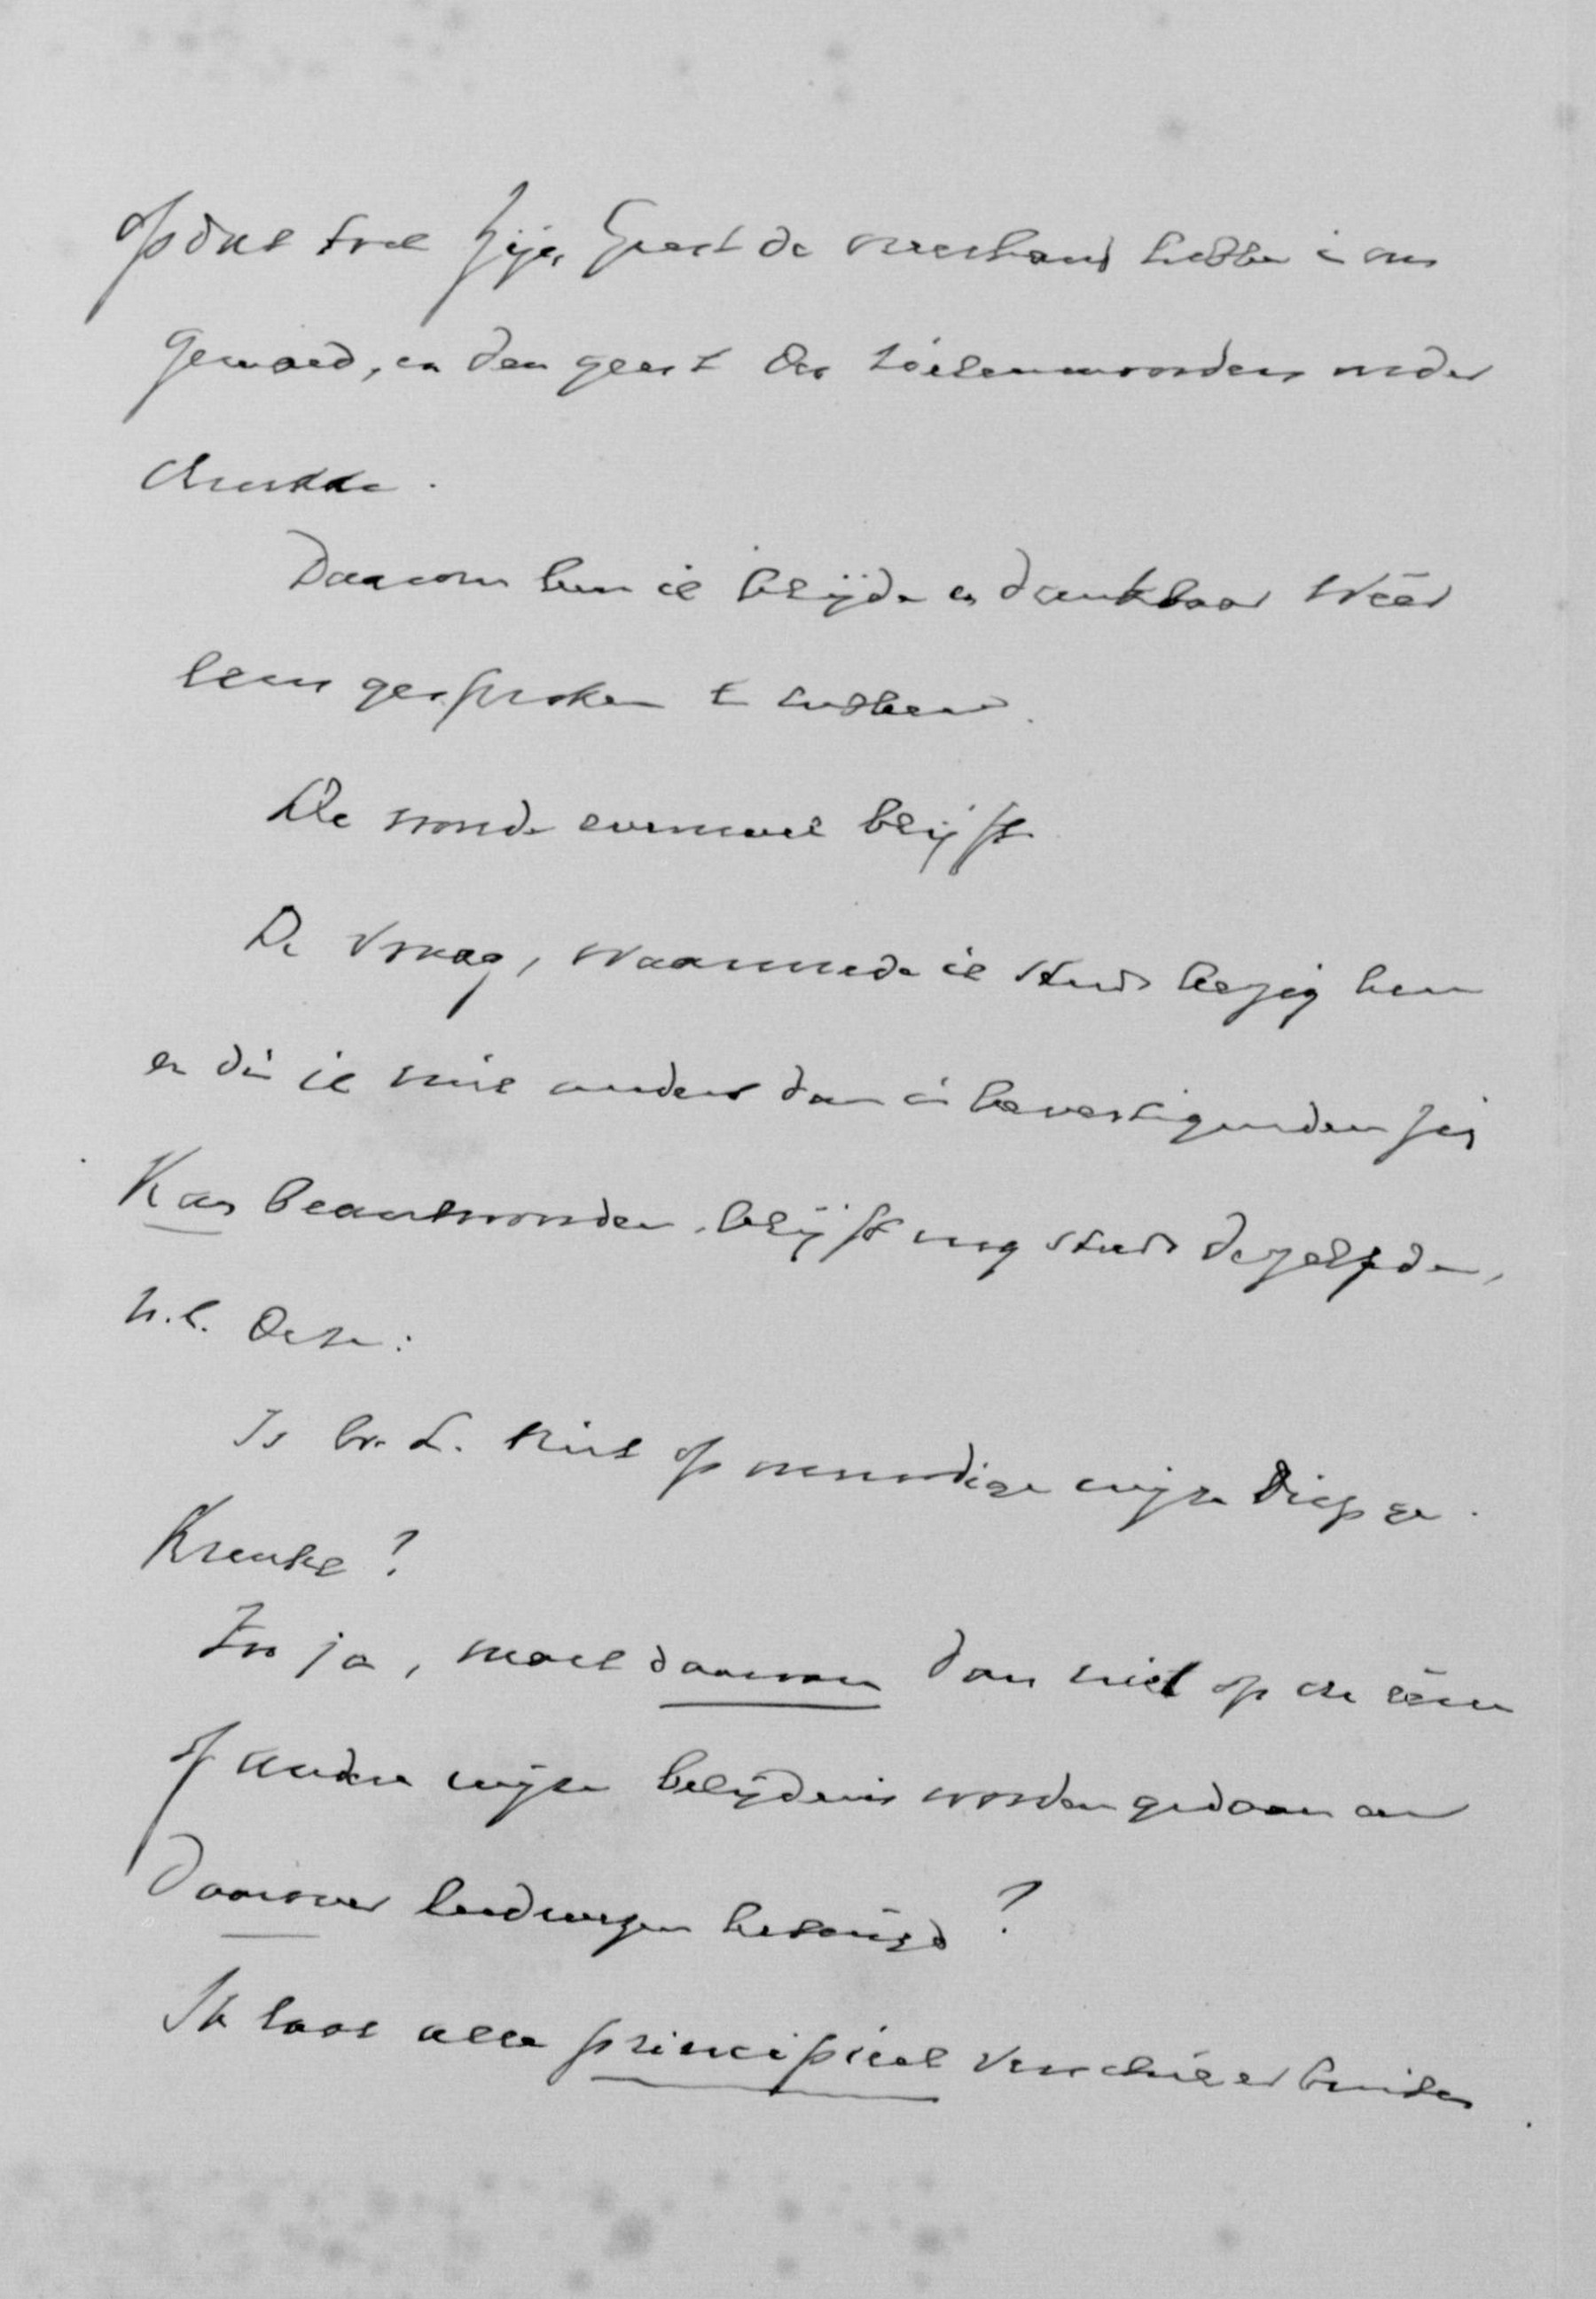 opdat toch Zijn Geest de overhand hebbe in ons
gemoed, en den geest des
drukke.
Daarom ben ik blijde en dankbaar weer
eens gesproken te hebben.
De wonde evenwel blijft.
De vraag, waarmede ik steeds bezig ben
en die ik niet anders dan in bevestigenden zin
kan beantwoorden, blijft nog steeds dezelfde,
n.l. deze:
Is br. L. niet op onwaardige wijze diep ge-
krenkt?
Zoo ja, moet daarvan dan niet op de eene
of andere wijze belijdenis worden gedaan en
daarover leedwezen betuigd?
Ik laat alle principieel verschil er buiten